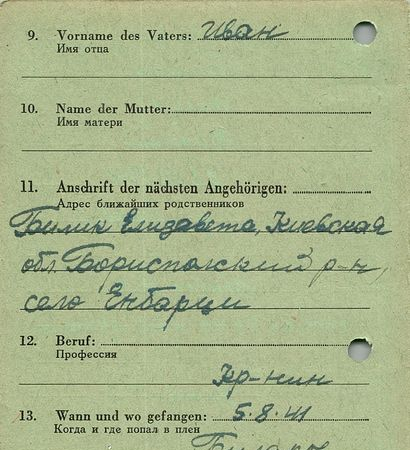 9. Vorname des Vaters: Иван
Имя отца
10. Name der Mutter:
Имя матери
11. Anschrift der nächsten Angehörigen:
Адрес ближайших родственников
Билик Елизавета, Киевская
обл. Бориспольский р-н,
село Енбарци
12. Beruf:
Профессия
кр-нин
13. Wann und wo gefangen: 5.8.41
Когда и где попал в плен